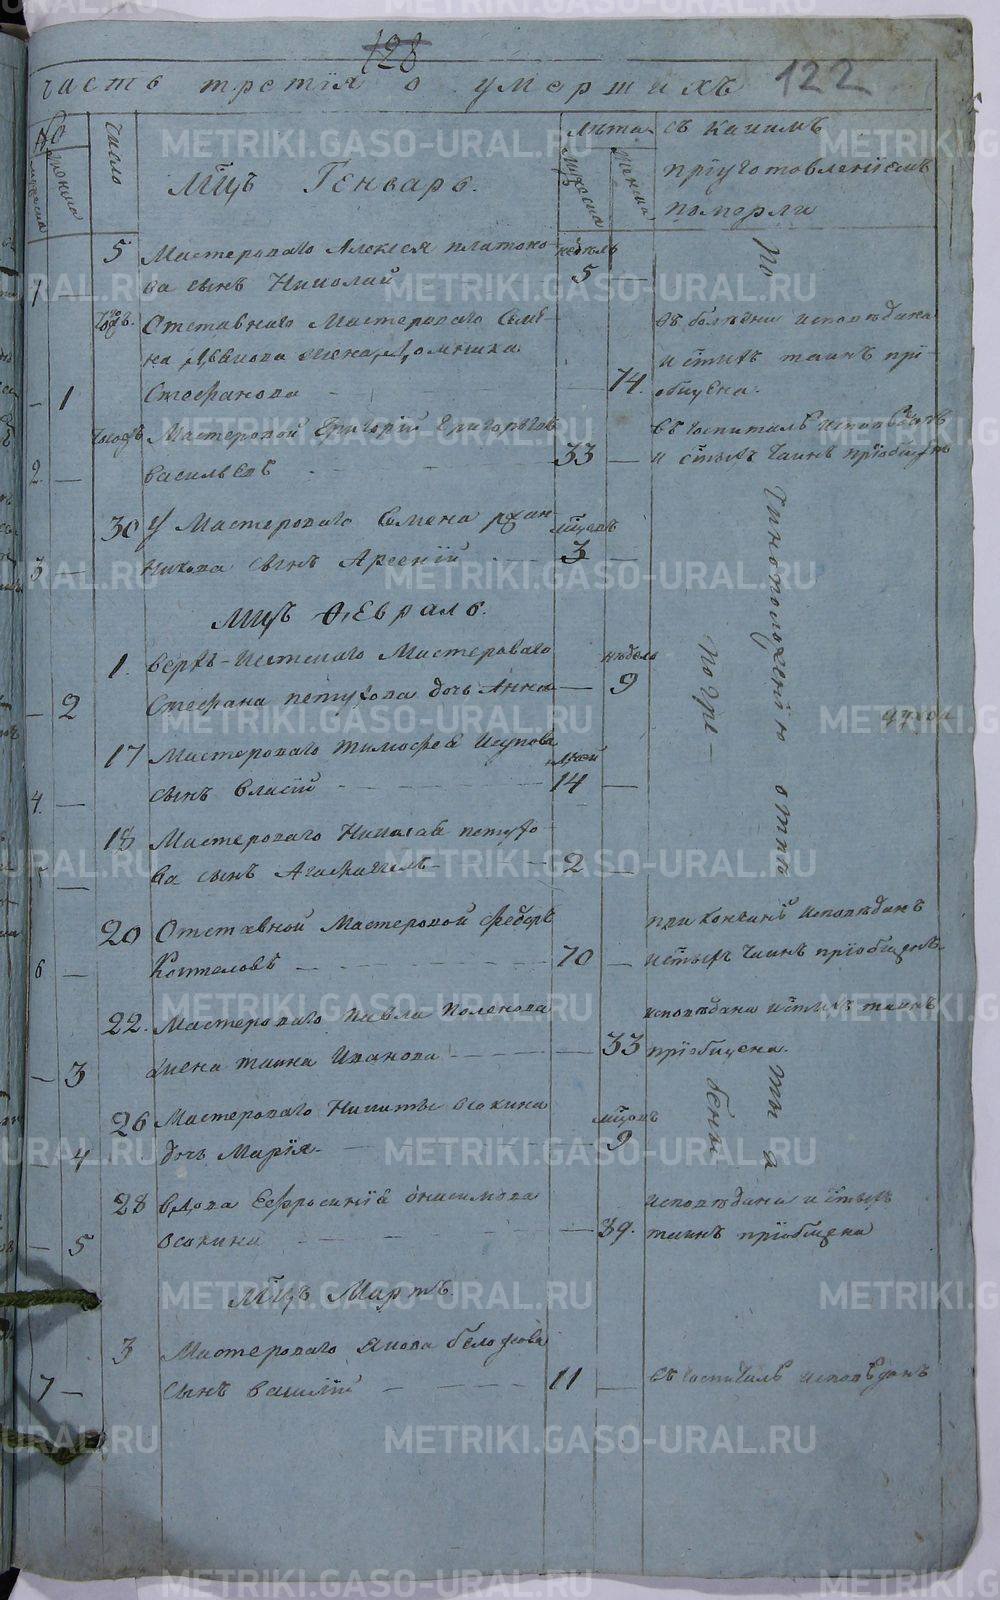 128
122
часть третія о умершихъ
№
мужеска
женска
число
Мцъ Генварь.
Лѣта
мужеска
женска
съ какимъ
пріуготовленіемъ
померли
5 Мастероваго Алексея платоно-
ва сынъ Николай
недѣль
5
1 —
Отставнаго Мастероваго Семе-
на жена Домника
Стефанова
74.
въ болѣзни исповѣдана
и стыхъ таинъ прі-
общена.
— 1
Мастеровой Григорій Григорьевъ
васильевъ
33 —
въ госпиталѣ исповѣданъ
и стыхъ таинъ пріобщенъ
2. —
30 У Мастероваго Семена
сынъ Арсеній
мцовъ
3 —
3 —
Мцъ Февраль.
1. верхъ-Исетскаго Мастероваго
Стефана петухова дочь Анна
недѣль
— 9
— 2
17 Мастероваго тимофея Исупова
сынъ власій
дней
14 —
4. —
18 Мастероваго Николая петухо-
ва сынъ Агафангелъ
2 —
5 —
20 Отставной Мастеровой Феодоръ
Котеловъ
70 —
при кончинѣ исповѣданъ
и стыхъ таинъ пріобщенъ.
6 —
22. Мастероваго павла поленова
жена татиана Иванова
— 33
исповѣдана и стыхъ таинъ
пріобщена.
— 3
26 Мастероваго Никиты осокина
дочь Марія
мцовъ
9
— 4
28 вдова Евфросинія Онисимова
осокина
— 39.
исповѣдана и стыхъ
таинъ пріобщена
— 5
Мцъ Мартъ.
3 Мастероваго Якова белоусова
сынъ василій
11 —
въ госпиталѣ исповѣданъ
7 —
По
чиноположенію отпѣ
ты и
погре-
бены
METRIKI.GASO-URAL.RU